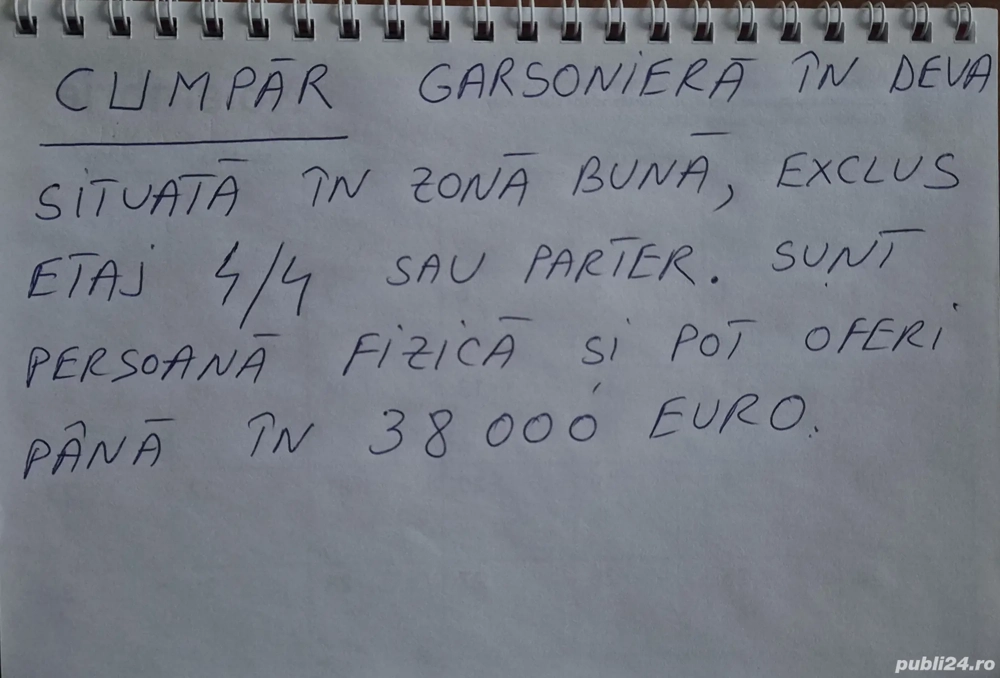 CUMPĂR GARSONIERĂ ÎN DEVA
SITUATĂ ÎN ZONĂ BUNĂ, EXCLUS
ETAJ 4/4 SAU PARTER. SUNT
PERSOANĂ FIZICĂ SI POT OFERI
PÂNĂ ÎN 38 000 EURO.
publi24.ro